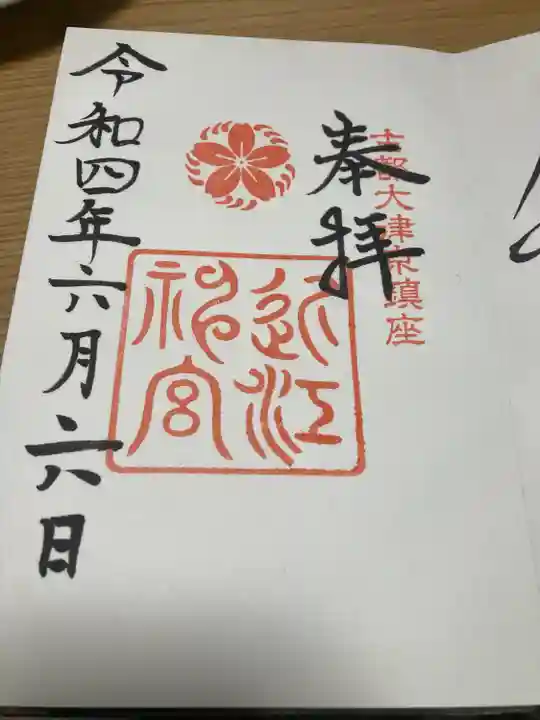 古都大津京鎮座
奉拝
近江
神宮
令和四年六月二六日